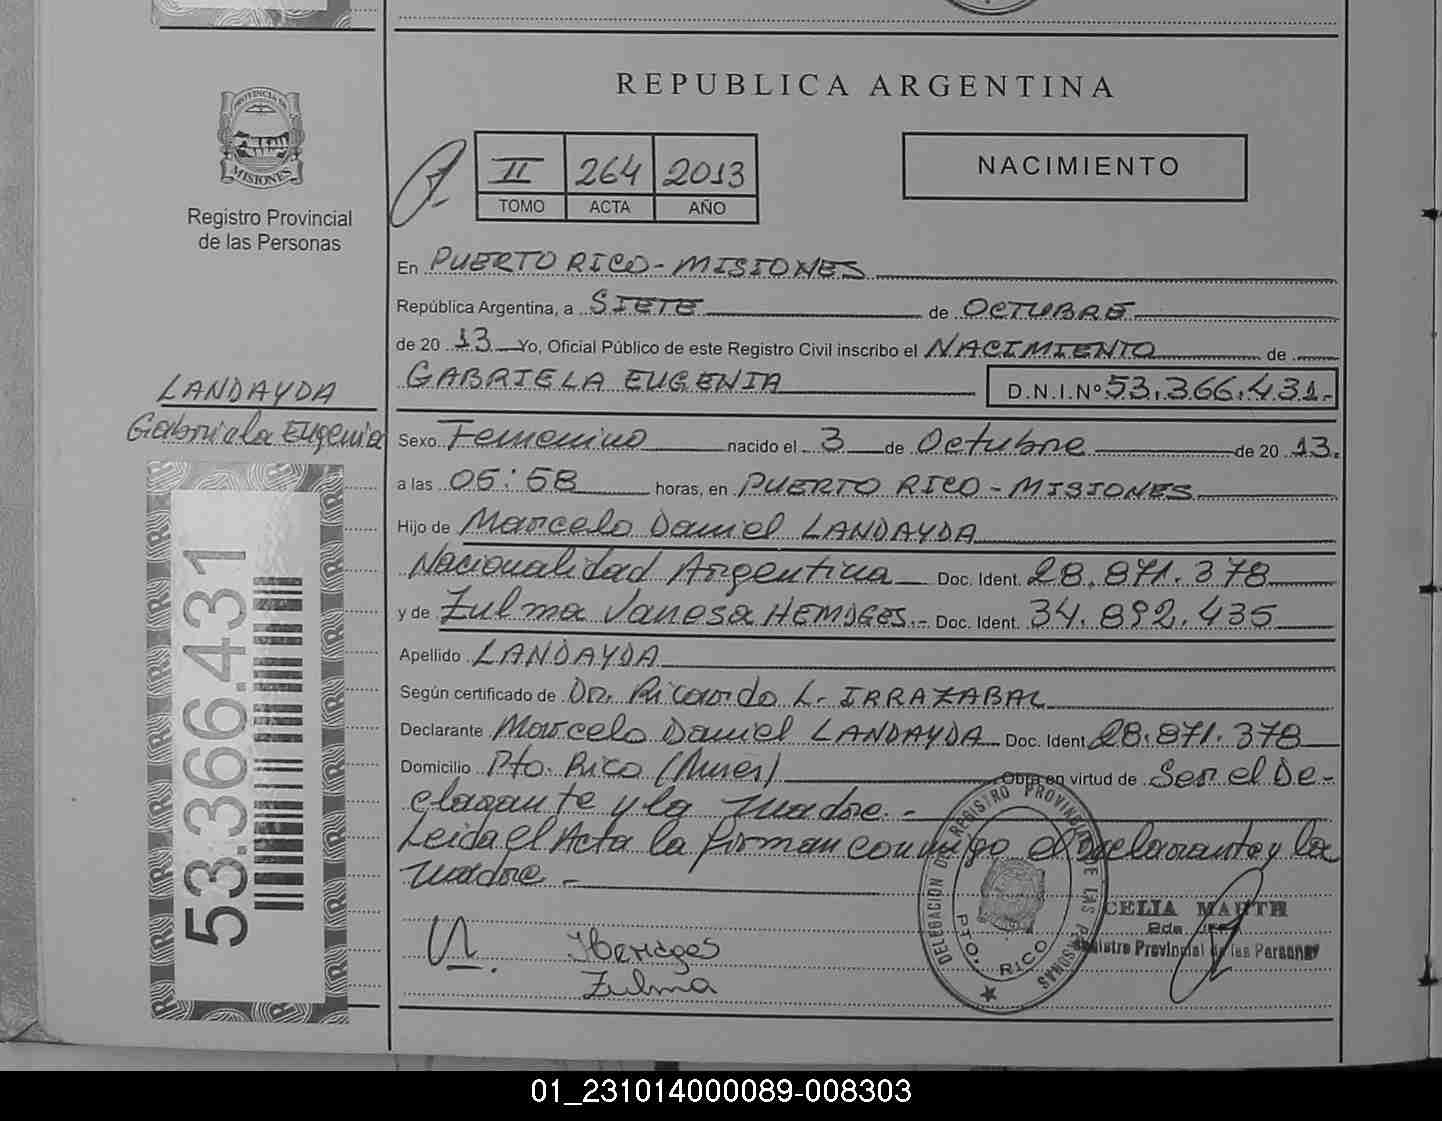 REPUBLICA ARGENTINA
PROVINCIA DE
MISIONES
Registro Provincial
de las Personas
II 264 2013
TOMO ACTA AÑO
NACIMIENTO
En PUERTO RICO - MISIONES
República Argentina, a SIETE de OCTUBRE
de 20 13 Yo, Oficial Público de este Registro Civil inscribo el NACIMIENTO de
GABRIELA EUGENIA D.N.I.Nº 53.366.431.-
LANDAYDA
Gabriela Eugenia
Sexo Femenino nacido el 3 de Octubre de 20 13.
a las 05:58 horas, en PUERTO RICO - MISIONES
Hijo de Marcelo Daniel LANDAYDA
Nacionalidad Argentina Doc. Ident. 28.871.378
y de Zulma Vanesa HEMSGES.- Doc. Ident. 34.892.435
Apellido LANDAYDA
Según certificado de Dr. Ricardo L. IRRAZABAL
Declarante Marcelo Daniel LANDAYDA Doc. Ident. 28.871.378
Domicilio Pto. Rico (Mnes) Obra en virtud de Ser el De-
clarante y la madre.-
Leida el Acta la firman conmigo el declarante y la
madre -
53.366.431
DELEGACION DE REGISTRO PROVINCIAL DE LAS PERSONAS
PTO. RICO
CELIA MARTH
Registro Provincial de las Personas
Zulma
01_231014000089-008303